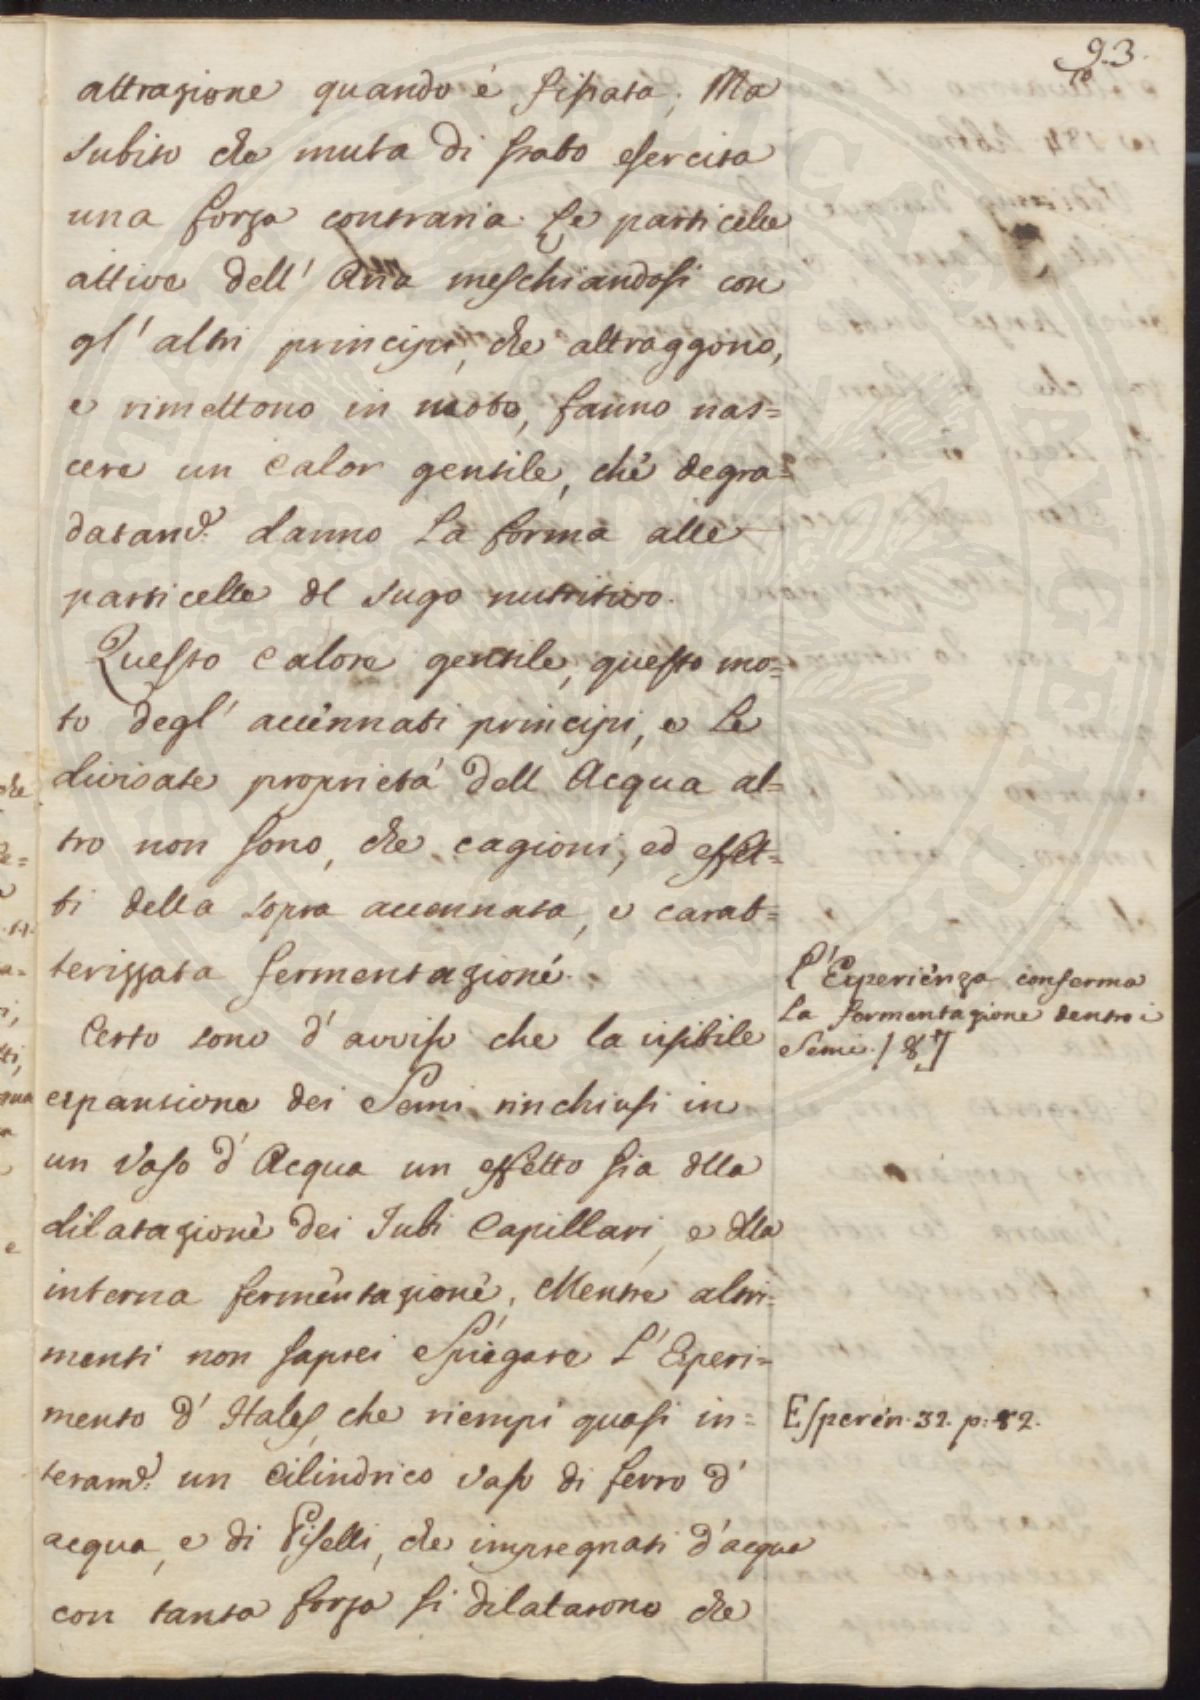 93.
attrazione quando é fissata; Ma
subito che muta di stato esercita
una forza contraria. Le particelle
attive dell' Aria meschiandosi con
gl' altri principj, che attraggono,
e rimettono in moto, fanno nas=
cere un calor gentile, che degra=
datam.e danno la forma alle
particelle del sugo nutritivo.
Questo calore gentile, questo mo=
to degl' accennati principj, e le
divisate proprietá dell Acqua al=
tro non sono, che cagioni, ed effet=
ti della sopra accennata, e carat=
terizzata fermentazione.
Certo sono d' avviso che la visibile
espansione dei Semi rinchiusi in
un Vaso d' Acqua un effetto sia della
dilatazione dei Tubi Capillari, e della
interna fermentazione, Mentre altri=
menti non saprei Spiegare L' Esperi=
mento d' Hales, che riempí quasi in=
teram.e un Cilindrico Vaso di ferro d'
acqua, e di Piselli, che impregnati d'acqua
con tanta forza si dilatarono che
L' Esperienza conferma
la fermentazione dentro i
Semi.
Esperén. 32. p: 82.